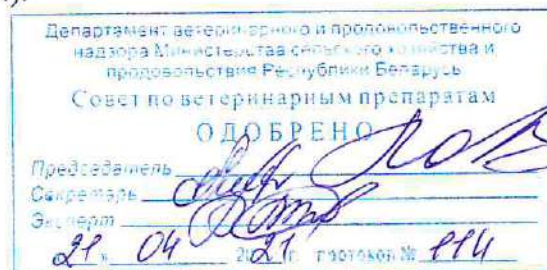 Департамент ветеринарного и продовольственного
надзора Министерства сельского хозяйства и
продовольствия Республики Беларусь
Совет по ветеринарным препаратам
ОДОБРЕНО
Председатель
Секретарь
Эксперт
21 ». 04 2021г. протокол № 114